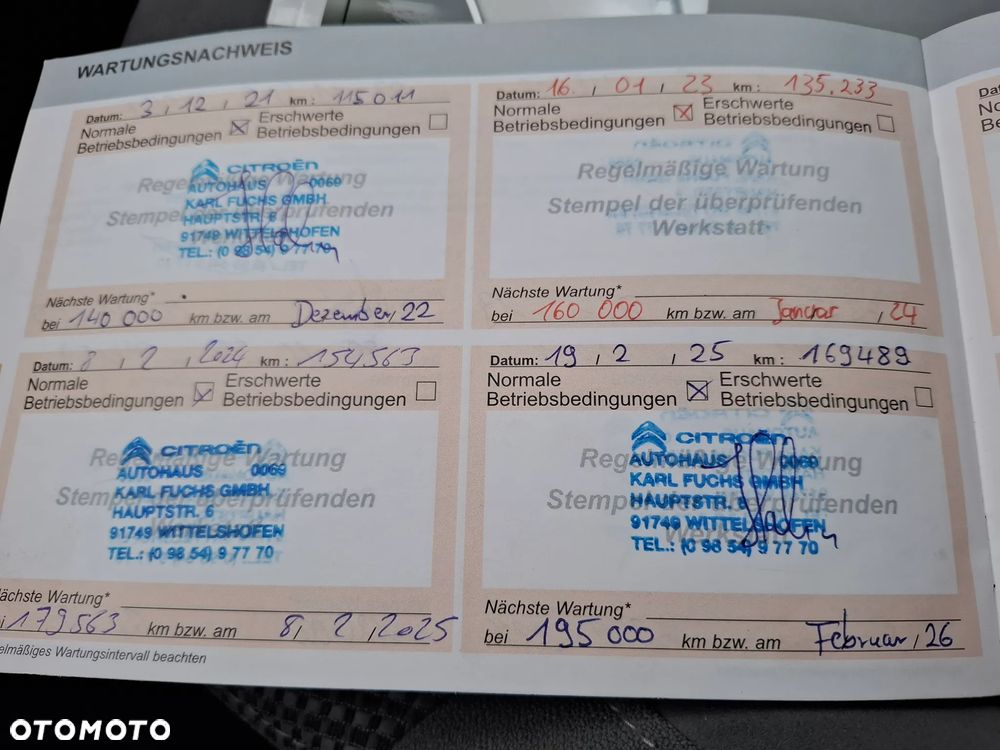 WARTUNGSNACHWEIS
Datum: 3, 12, 21 km: 115011
Normale Betriebsbedingungen ☒ Erschwerte Betriebsbedingungen ☐
Regelmäßige Wartung
Stempel der überprüfenden
CITROËN
AUTOHAUS 0069
KARL FUCHS GMBH
HAUPTSTR. 6
91749 WITTELSHOFEN
TEL.: (0 98 54) 9 77 70
Nächste Wartung*
bei 140 000 km bzw. am Dezember, 22
Datum: 16, 01, 23 km: 135.233
Normale Betriebsbedingungen ☒ Erschwerte Betriebsbedingungen ☐
Regelmäßige Wartung
Stempel der überprüfenden
Werkstatt
Nächste Wartung*
bei 160 000 km bzw. am Januar, 24
Datum: 8, 2, 2024 km: 154,563
Normale Betriebsbedingungen ☒ Erschwerte Betriebsbedingungen ☐
Regelmäßige Wartung
Stempel der überprüfenden
CITROËN
AUTOHAUS 0069
KARL FUCHS GMBH
HAUPTSTR. 6
91749 WITTELSHOFEN
TEL.: (0 98 54) 9 77 70
ächste Wartung*
i 179563 km bzw. am 8, 2, 2025
elmäßiges Wartungsintervall beachten
Datum: 19, 2, 25 km: 169489
Normale Betriebsbedingungen ☒ Erschwerte Betriebsbedingungen ☐
Regelmäßige Wartung
Stempel der überprüfenden
Werkstatt
CITROËN
AUTOHAUS 0069
KARL FUCHS GMBH
HAUPTSTR. 6
91749 WITTELSHOFEN
TEL.: (0 98 54) 9 77 70
Nächste Wartung*
bei 195 000 km bzw. am Februar, 26
OTOMOTO